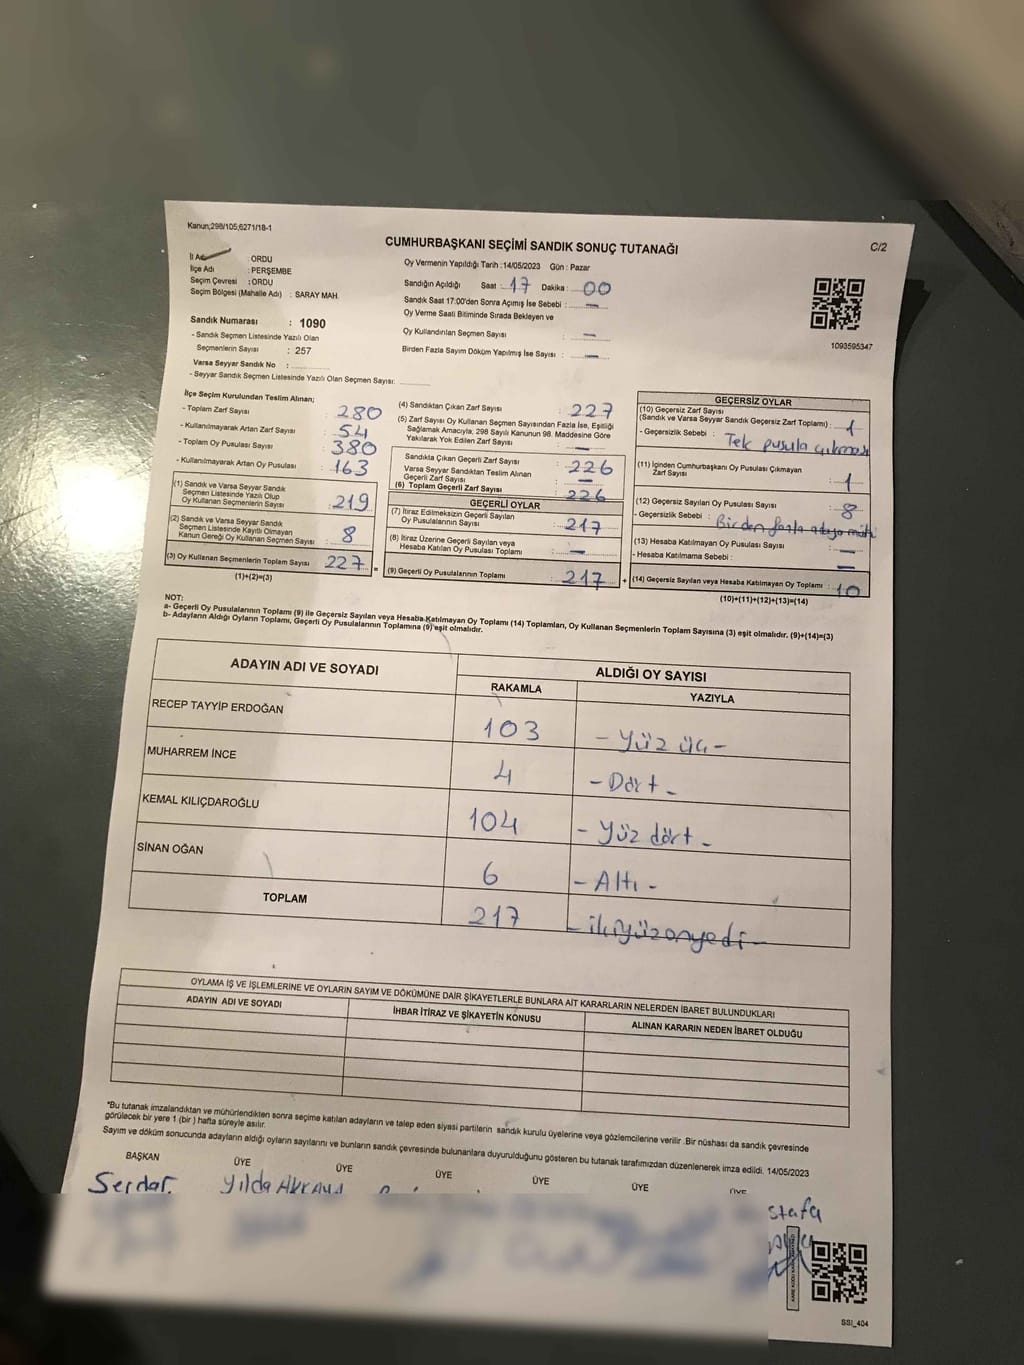 Kanun;298/105,6271/18-1
CUMHURBAŞKANI SEÇİMİ SANDIK SONUÇ TUTANAĞI
C/2
İl Adı : ORDU
İlçe Adı : PERŞEMBE
Seçim Çevresi : ORDU
Seçim Bölgesi (Mahalle Adı) : SARAY MAH.
Sandık Numarası : 1090
- Sandık Seçmen Listesinde Yazılı Olan
Seçmenlerin Sayısı : 257
Varsa Seyyar Sandık No :
- Seyyar Sandık Seçmen Listesinde Yazılı Olan Seçmen Sayısı:
Oy Vermenin Yapıldığı Tarih :14/05/2023 Gün : Pazar
Sandığın Açıldığı Saat : 17 Dakika : 00
Sandık Saat 17:00'den Sonra Açımış İse Sebebi : —
Oy Verme Saati Bitiminde Sırada Bekleyen ve
Oy Kullandırılan Seçmen Sayısı : —
Birden Fazla Sayım Döküm Yapılmış İse Sayısı : —
1093595347
İlçe Seçim Kurulundan Teslim Alınan;
- Toplam Zarf Sayısı : 280
- Kullanılmayarak Artan Zarf Sayısı : 54
- Toplam Oy Pusulası Sayısı : 380
- Kullanılmayarak Artan Oy Pusulası : 163
(1) Sandık ve Varsa Seyyar Sandık
Seçmen Listesinde Yazılı Olup
Oy Kullanan Seçmenlerin Sayısı : 219
(2) Sandık ve Varsa Seyyar Sandık
Seçmen Listesinde Kayıtlı Olmayan
Kanun Gereği Oy Kullanan Seçmen Sayısı : 8
(3) Oy Kullanan Seçmenlerin Toplam Sayısı : 227
(1)+(2)=(3)
(4) Sandıktan Çıkan Zarf Sayısı : 227
(5) Zarf Sayısı Oy Kullanan Seçmen Sayısından Fazla İse, Eşitliği
Sağlamak Amacıyla; 298 Sayılı Kanunun 98. Maddesine Göre
Yakılarak Yok Edilen Zarf Sayısı : —
Sandıkta Çıkan Geçerli Zarf Sayısı : 226
Varsa Seyyar Sandıktan Teslim Alınan
Geçerli Zarf Sayısı : —
(6) Toplam Geçerli Zarf Sayısı : 226
GEÇERLİ OYLAR
(7) İtiraz Edilmeksizin Geçerli Sayılan
Oy Pusulalarının Sayısı : 217
(8) İtiraz Üzerine Geçerli Sayılan veya
Hesaba Katılan Oy Pusulası Toplamı : —
= (9) Geçerli Oy Pusulalarının Toplamı : 217
GEÇERSİZ OYLAR
(10) Geçersiz Zarf Sayısı
(Sandık ve Varsa Seyyar Sandık Geçersiz Zarf Toplamı) : 1
- Geçersizlik Sebebi : Tek pusula çıkması
(11) İçinden Cumhurbaşkanı Oy Pusulası Çıkmayan
Zarf Sayısı : 1
(12) Geçersiz Sayılan Oy Pusulası Sayısı : 8
- Geçersizlik Sebebi : Birden fazla
(13) Hesaba Katılmayan Oy Pusulası Sayısı : —
- Hesaba Katılmama Sebebi : —
+ (14) Geçersiz Sayılan veya Hesaba Katılmayan Oy Toplamı : 10
(10)+(11)+(12)+(13)=(14)
NOT:
a- Geçerli Oy Pusulalarının Toplamı (9) ile Geçersiz Sayılan veya Hesaba Katılmayan Oy Toplamı (14) Toplamları, Oy Kullanan Seçmenlerin Toplam Sayısına (3) eşit olmalıdır. (9)+(14)=(3)
b- Adayların Aldığı Oyların Toplamı, Geçerli Oy Pusulalarının Toplamına (9) eşit olmalıdır.
ADAYIN ADI VE SOYADI
ALDIĞI OY SAYISI
RAKAMLA YAZIYLA
RECEP TAYYİP ERDOĞAN 103 - Yüz üç -
MUHARREM İNCE 4 - Dört -
KEMAL KILIÇDAROĞLU 104 - Yüz dört -
SİNAN OĞAN 6 - Altı -
TOPLAM 217 - ikiyüzonyedi -
OYLAMA İŞ VE İŞLEMLERİNE VE OYLARIN SAYIM VE DÖKÜMÜNE DAİR ŞİKAYETLERLE BUNLARA AİT KARARLARIN NELERDEN İBARET BULUNDUKLARI
ADAYIN ADI VE SOYADI İHBAR İTİRAZ VE ŞİKAYETİN KONUSU ALINAN KARARIN NEDEN İBARET OLDUĞU
*Bu tutanak imzalandıktan ve mühürlendikten sonra seçime katılan adayların ve talep eden siyasi partilerin sandık kurulu üyelerine veya gözlemcilerine verilir .Bir nüshası da sandık çevresinde
görülecek bir yere 1 (bir ) hafta süreyle asılır.
Sayım ve döküm sonucunda adayların aldığı oyların sayılarını ve bunların sandık çevresinde bulunanlara duyurulduğunu gösteren bu tutanak tarafımızdan düzenlenerek imza edildi. 14/05/2023
BAŞKAN ÜYE ÜYE ÜYE ÜYE ÜYE ÜYE
Serdar Yılda
stafa
SSI_404